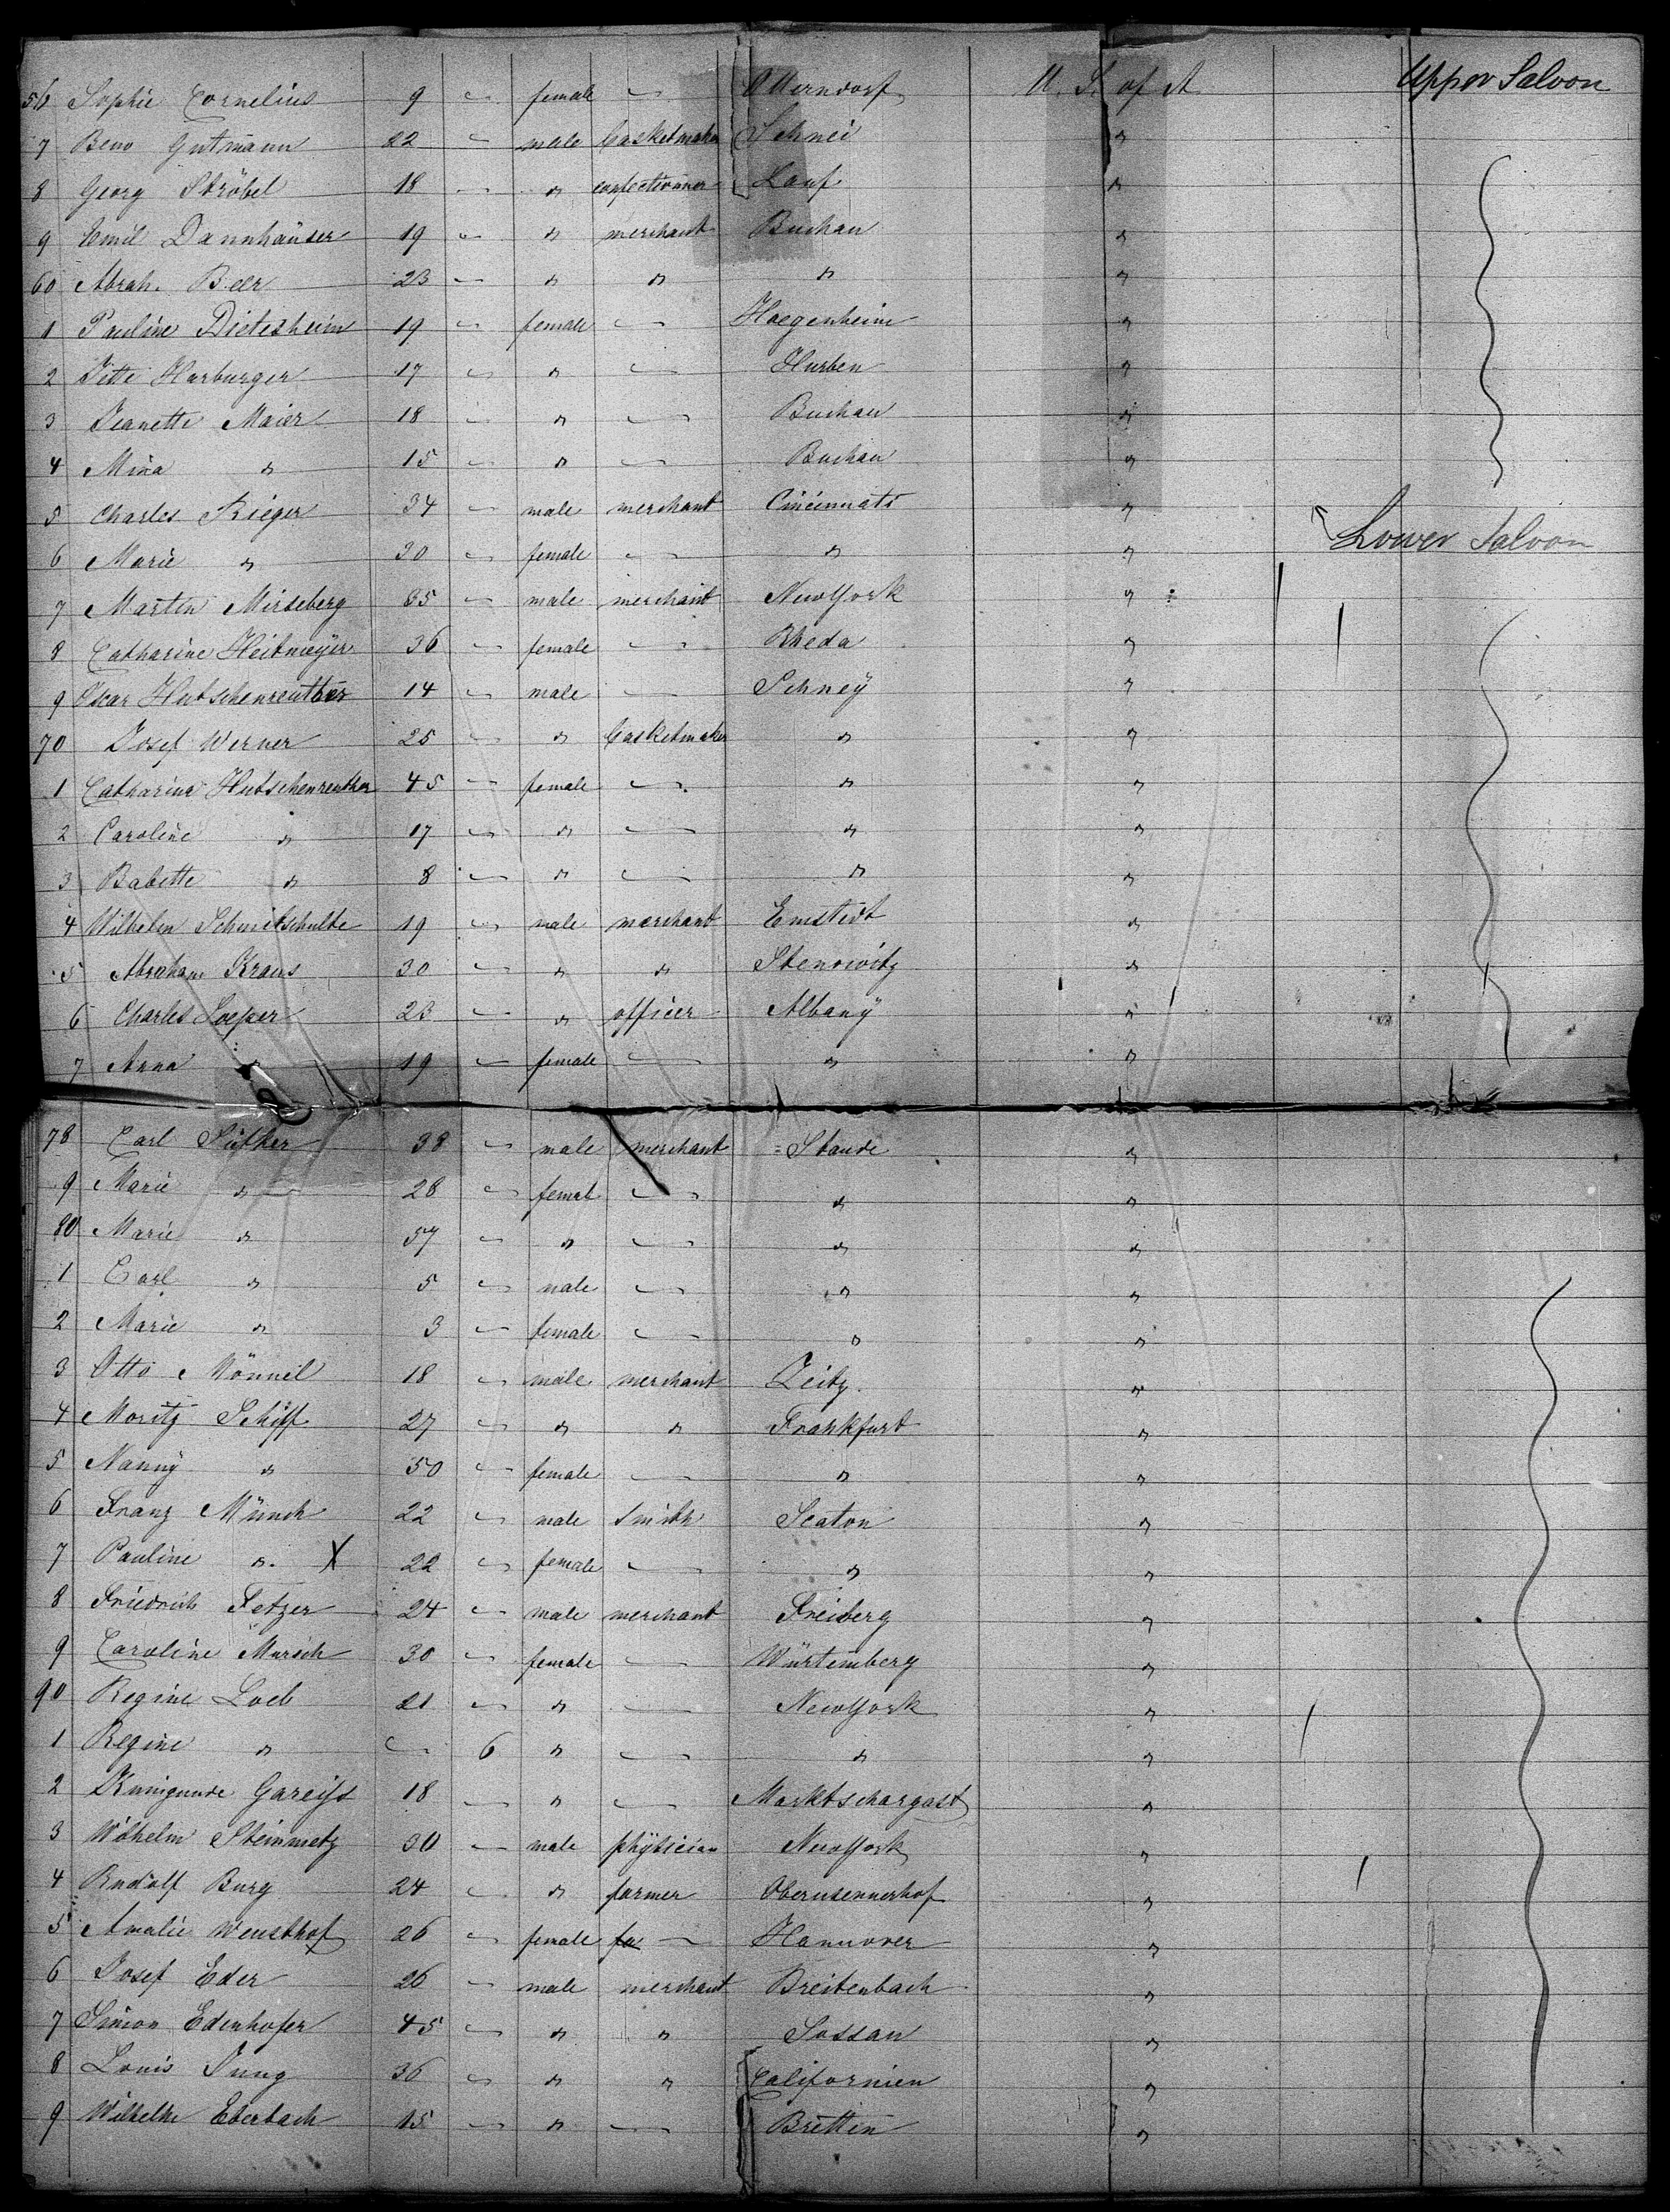 56 Sophie Cornelius 9 — female — Otterndorf U. S. of A Upper Saloon
7 Beno Gutmann 22 — male Basketmaker Schnei "
8 Georg Ströbel 18 — " confectioner Lauf "
9 Emil Dannhäuser 19 — " merchant Buchau "
60 Abrah. Beer 23 — " " " "
1 Pauline Dietesheim 19 — female — Haegenheim "
2 Jette Harburger 17 — " — Hurben "
3 Jeanette Maier 18 — " — Buchau "
4 Mina " 15 — " — Buchau "
5 Charles Rieger 34 — male merchant Cincinnati "
6 Marie " 30 — female — " " Lower Saloon
7 Martin Mirseberg 35 — male merchant NewYork "
8 Catharine Heitmeyer 36 — female — Rheda "
9 Oscar Hutschenreuther 14 — male — Schney "
70 Josef Werner 25 — " Basketmaker " "
1 Catharina Hutschenreuther 45 — female — " "
2 Caroline " 17 — " — " "
3 Babette " 8 — " — " "
4 Wilhelm Schmitschulte 19 — male merchant Emstedt "
5 Abraham Kraus 30 — " " Stenowitz "
6 Charles Loeper 23 — " officer Albany "
7 Anna " 19 — female — " "
78 Carl Süther 38 — male merchant Staude "
9 Marie " 28 — femal — " "
80 Marie " 57 — " — " "
1 Carl " 5 — male — " "
2 Marie " 3 — female — " "
3 Otto Mönnil 18 — male merchant Zeitz "
4 Moritz Schiff 27 — " " Frankfurt "
5 Nanny " 50 — female — " "
6 Franz Münch 22 — male Smith Seaton "
7 Pauline " X 22 — female — " "
8 Friedrich Fetzer 24 — male merchant Freiberg "
9 Caroline Mursch 30 — female — Würtemberg "
90 Regine Loeb 21 — " — NewYork "
1 Regine " — 6 " — " "
2 Kunigunde Gareiss 18 — " — Marktschorgast "
3 Wilhelm Steinmetz 30 — male physician NewYork "
4 Rudolf Burg 24 — " farmer "
5 Amalie Wensthof 26 — female fa — Hannover "
6 Josef Eder 26 — male merchant Breitenbach "
7 Simon Edenhofer 45 — " " Sossau "
8 Louis Jung 36 — " " Californien "
9 Wilhelm Eberbach 15 — " — Brettin "